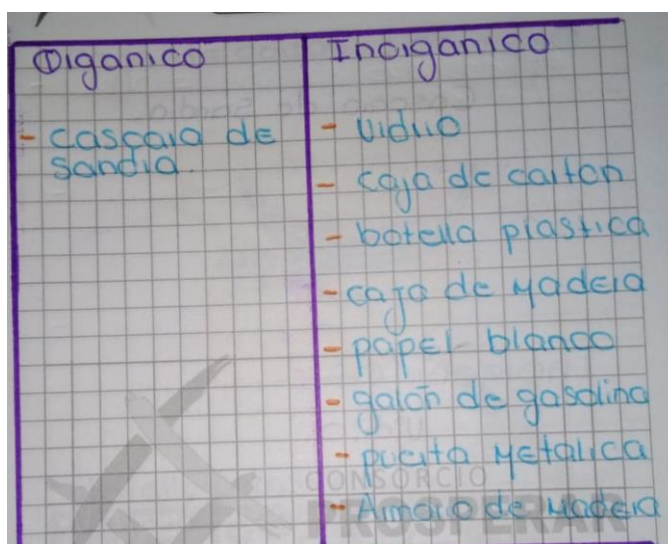 Organico
- cascara de
sandia.
Inorganico
- vidrio
- caja de carton
- botella plastica
- caja de madera
- papel blanco
- galón de gasolina
- puerta metalica
- Amario de madera
CONSORCIO
PROSPERAR